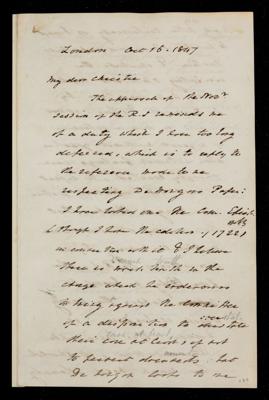 London Oct 16. 1847
My dear Christie
The approach of the Novr
Session of the R.S. reminds me
of a duty which I have too long
deferred, which is to reply to
the reference made to me
respecting De Morgan's Paper.
I have looked over the Com. Epist.
(though I have the edition of 1722)
in connection with it & I believe
there is much truth in the
charge which he endeavours
to bring against the Committee
of a disposition to overstate
their case at least if not
to pervert documents. but
De Morgan looks to me